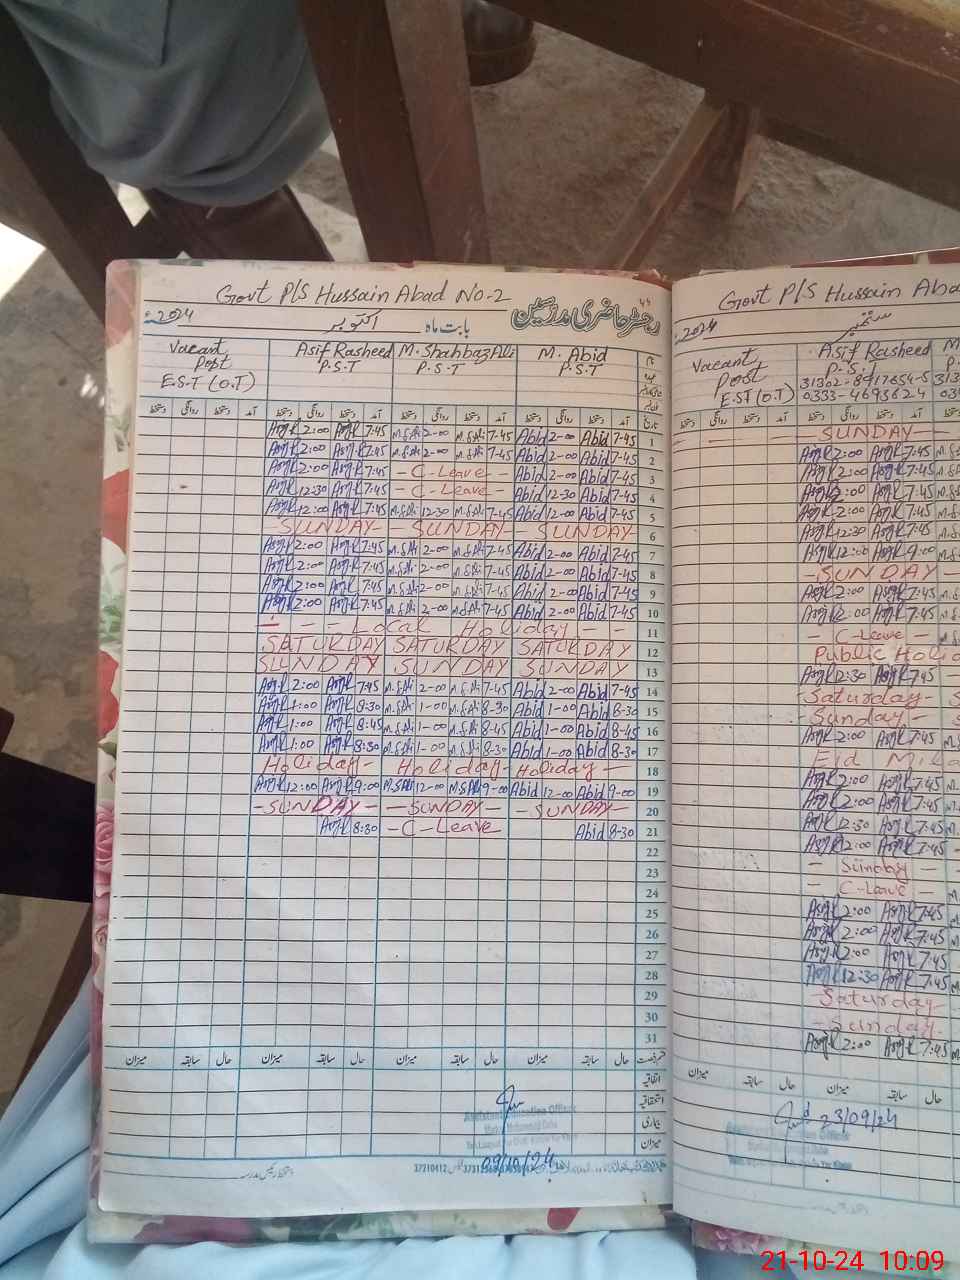 Govt P/S Hussain Abad No-2
رجسٹر حاضری مدرسین بابت ماہ اکتوبر 2024ء
Vacant Post E.S.T (O.T) Asif Rasheed P.S.T M. Shahbaz Ali P.S.T M. Abid P.S.T
دستخط روانگی دستخط آمد دستخط روانگی دستخط آمد دستخط روانگی دستخط آمد دستخط روانگی دستخط آمد تاریخ
2:00 7:45 M.S.Ali 2-00 M.S.Ali 7-45 Abid 2-00 Abid 7-45 1
2:00 7:45 M.S.Ali 2-00 M.S.Ali 7-45 Abid 2-00 Abid 7-45 2
2:00 7:45 - C-Leave - Abid 2-00 Abid 7-45 3
12:30 7:45 - C-Leave - Abid 12-30 Abid 7-45 4
12:00 7:45 M.S.Ali 12-30 M.S.Ali 7-45 Abid 12-00 Abid 7-45 5
- SUNDAY - - SUNDAY - SUNDAY - 6
2:00 7:45 M.S.Ali 2-00 M.S.Ali 7-45 Abid 2-00 Abid 7-45 7
2:00 7:45 M.S.Ali 2-00 M.S.Ali 7-45 Abid 2-00 Abid 7-45 8
2:00 7:45 M.S.Ali 2-00 M.S.Ali 7-45 Abid 2-00 Abid 7-45 9
2:00 7:45 M.S.Ali 2-00 M.S.Ali 7-45 Abid 2-00 Abid 7-45 10
- - - Local Holiday - - 11
SATURDAY SATURDAY SATURDAY 12
SUNDAY SUNDAY SUNDAY 13
2:00 7:45 M.S.Ali 2-00 M.S.Ali 7-45 Abid 2-00 Abid 7-45 14
1:00 8:30 M.S.Ali 1-00 M.S.Ali 8-30 Abid 1-00 Abid 8-30 15
1:00 8:45 M.S.Ali 1-00 M.S.Ali 8-45 Abid 1-00 Abid 8-45 16
1:00 8:30 M.S.Ali 1-00 M.S.Ali 8-30 Abid 1-00 Abid 8-30 17
Holiday - Holiday - Holiday - 18
12:00 9:00 M.S.Ali 12-00 M.S.Ali 9-00 Abid 12-00 Abid 9-00 19
- SUNDAY - - SUNDAY - - SUNDAY - 20
8:30 - C-Leave Abid 8-30 21
22
23
24
25
26
27
28
29
30
31
میزان سابقہ حال میزان سابقہ حال میزان سابقہ حال میزان سابقہ حال
اتفاقیہ
استحقاقیہ
بیماری
میزان
Assistant Education Officer
09/10/24
37210412
Govt P/S Hussain Aba
ستمبر 2024ء
Vacant Post E.S.T (O.T) Asif Rasheed P.S.T
31302-8917654-5
0333-4693624
SUNDAY -
2:00 7:45
2:00 7:45
2:00 7:45
2:00 7:45
12:30 7:45
12:00 9:00
- SUNDAY -
2:00 7:45
2:00 7:45
- C-Leave -
Public Holi
12:30 7:45
- Saturday -
- Sunday -
2:00 7:45
Eid Mila
2:00 7:45
2:00 7:45
12:30 7:45
2:00 7:45
- Sunday -
- C-Leave -
2:00 7:45
2:00 7:45
2:00 7:45
12:30 7:45
- Saturday
- Sunday -
2:00 7:45
میزان سابقہ حال میزان سابقہ حال
23/09/24
Education Officer
21-10-24 10:09